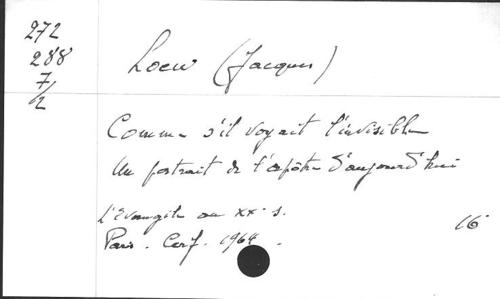 272
288
7/2
Loew (Jacques)
Comme s'il voyait l'invisible
Un portrait de l'apôtre d'aujourd'hui
L'Evangile au XXe s.
16°
Paris. Cerf. 1964.